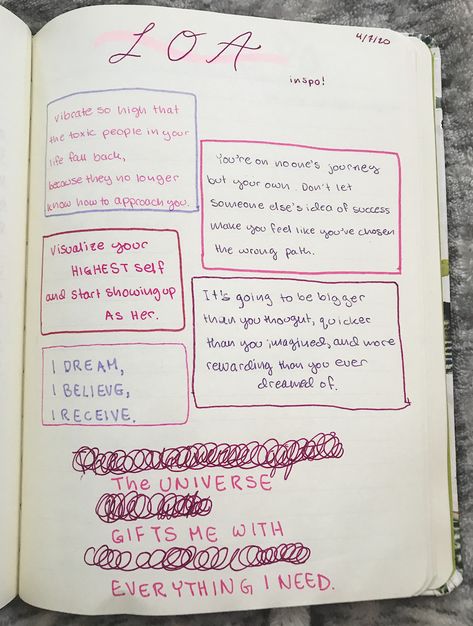 LOA
4/7/20
inspo!
vibrate so high that
the toxic people in your
life fall back,
because they no longer
know how to approach you.
You're on no one's journey
but your own. Don't let
someone else's idea of success
make you feel like you've chosen
the wrong path.
Visualize your
HIGHEST self
and start showing up
As Her.
It's going to be bigger
than you thought, quicker
than you imagined, and more
rewarding than you ever
dreamed of.
I DREAM,
I BELIEVE,
I RECEIVE.
The UNIVERSE
GIFTS ME WITH
EVERYTHING I NEED.